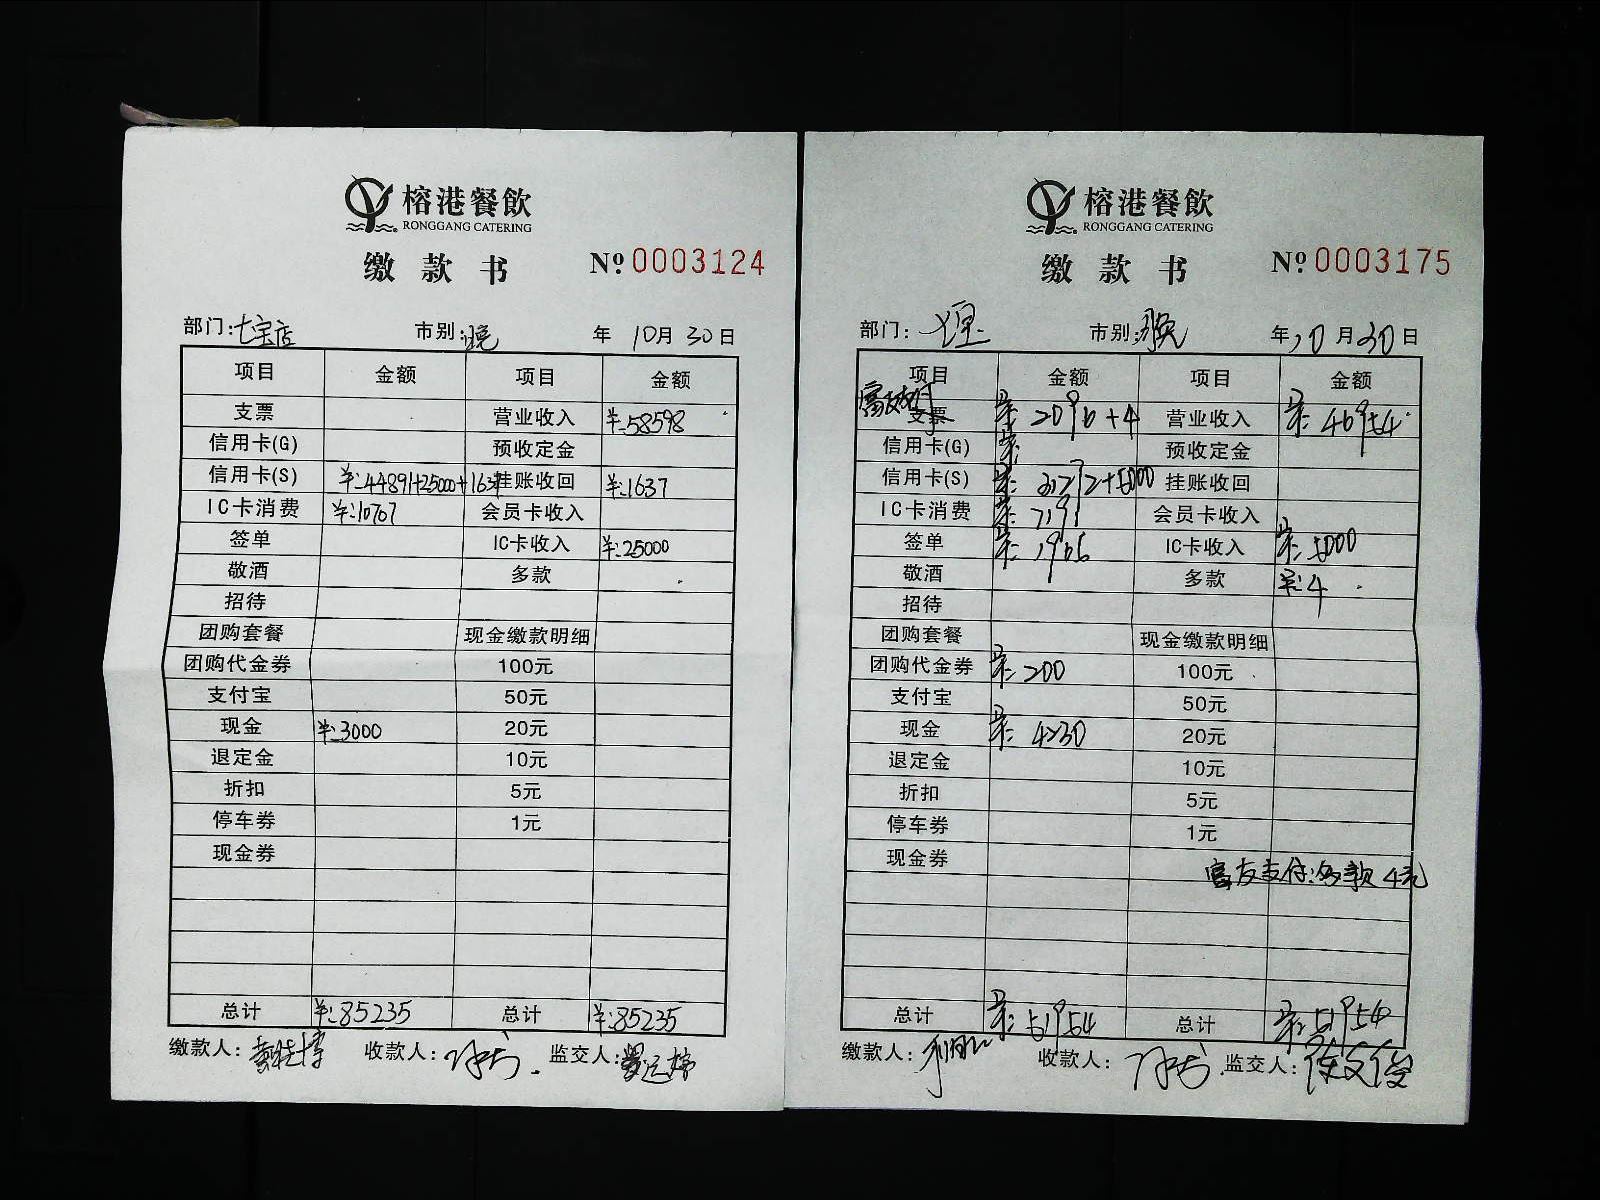 榕港餐飲
RONGGANG CATERING
缴款书 № 0003124
部门:七宝店 市别:晚 年10月30日
项目 金额 项目 金额
支票 营业收入 ¥:58598
信用卡(G) 预收定金
信用卡(S) ¥:44891+25000+1637 挂账收回 ¥:1637
IC卡消费 ¥:10707 会员卡收入
签单 IC卡收入 ¥:25000
敬酒 多款
招待
团购套餐 现金缴款明细
团购代金券 100元
支付宝 50元
现金 ¥:3000 20元
退定金 10元
折扣 5元
停车券 1元
现金券
总计 ¥:85235 总计 ¥:85235
缴款人: 收款人: 监交人:
榕港餐飲
RONGGANG CATERING
缴款书 № 0003175
部门: 市别:晚 年10月30日
项目 金额 项目 金额
支票 2096+4 营业收入 46954
信用卡(G) 预收定金
信用卡(S) 挂账收回
IC卡消费 7191 会员卡收入
签单 1966 IC卡收入 5000
敬酒 多款 4
招待
团购套餐 现金缴款明细
团购代金券 200 100元
支付宝 50元
现金 20元
退定金 10元
折扣 5元
停车券 1元
现金券
富友支付:多款4元
总计 51954 总计 51954
缴款人: 收款人: 监交人: